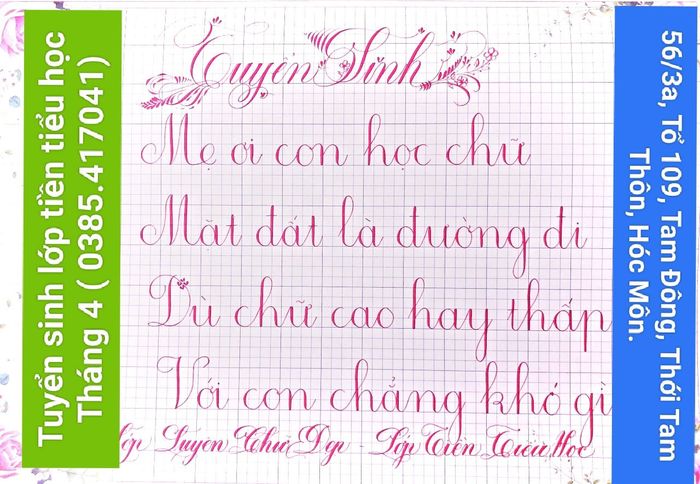 Tuyển sinh lớp tiền tiểu học
Tháng 4 ( 0385.417041)
Tuyển Sinh
Mẹ ơi con học chữ
Mặt đất là đường đi
Dù chữ cao hay thấp
Với con chẳng khó gì
Lớp Luyện Chữ Đẹp - Lớp Tiền Tiểu Học
56/3a, Tổ 109, Tam Đông, Thới Tam
Thôn, Hóc Môn.